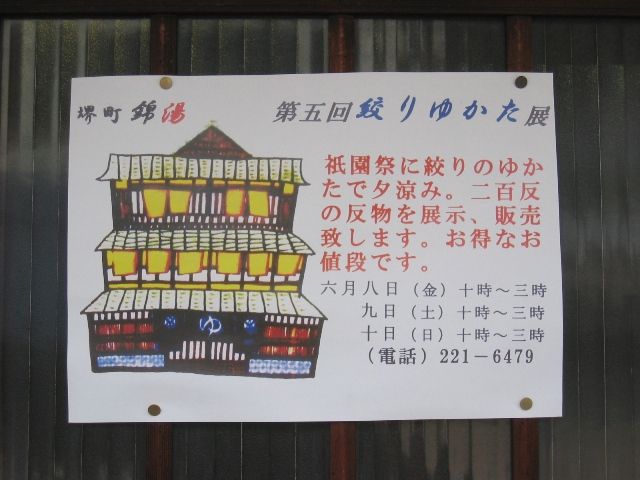 堺町 錦湯
第五回絞りゆかた展
祇園祭に絞りのゆか
たで夕涼み。二百反
の反物を展示、販売
致します。お得なお
値段です。
六月八日（金）十時～三時
九日（土）十時～三時
十日（日）十時～三時
（電話）221－6479
ゆ